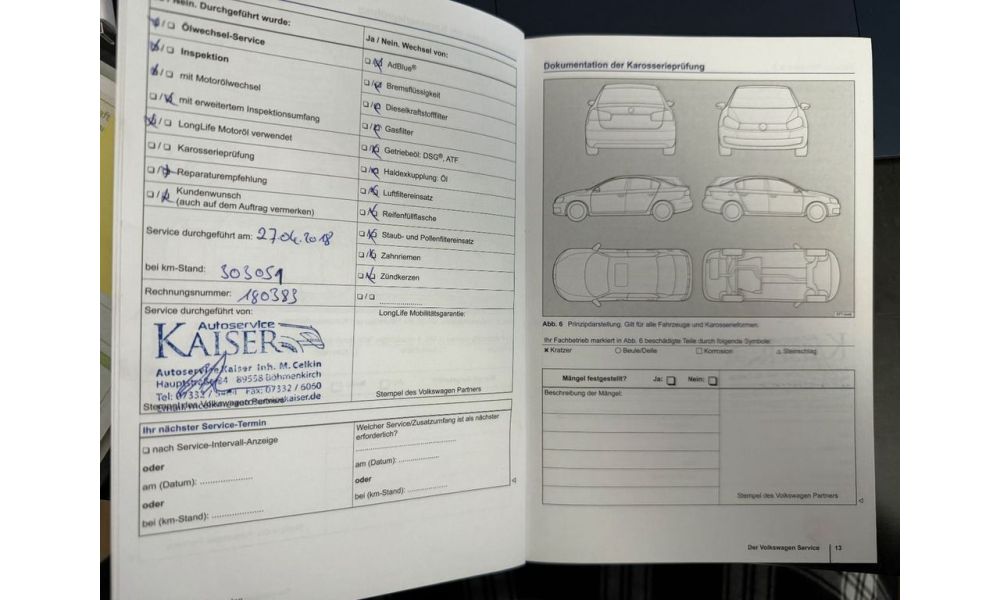 Nein. Durchgeführt wurde:
Ölwechsel-Service
Inspektion
mit Motorölwechsel
mit erweitertem Inspektionsumfang
LongLife Motoröl verwendet
Karosserieprüfung
Reparaturempfehlung
Kundenwunsch
(auch auf dem Auftrag vermerken)
Service durchgeführt am: 27.04.2018
bei km-Stand: 303051
Rechnungsnummer: 180383
Service durchgeführt von:
Autoservice
KAISER
Autoservice Kaiser Inh. M. Celkin
89558 Böhmenkirch
Fax: 07332 / 6060
Ja / Nein. Wechsel von:
AdBlue®
Bremsflüssigkeit
Dieselkraftstofffilter
Gasfilter
Getriebeöl: DSG®, ATF
Haldexkupplung: Öl
Luftfiltereinsatz
Reifenfüllflasche
Staub- und Pollenfiltereinsatz
Zahnriemen
Zündkerzen
LongLife Mobilitätsgarantie:
Stempel des Volkswagen Partners
Ihr nächster Service-Termin
nach Service-Intervall-Anzeige
oder
am (Datum):
oder
bei (km-Stand):
Welcher Service/Zusatzumfang ist als nächster
erforderlich?
am (Datum):
oder
bei (km-Stand):
Dokumentation der Karosserieprüfung
Abb. 6 Prinzipdarstellung. Gilt für alle Fahrzeuge und Karosserieformen.
Ihr Fachbetrieb markiert in Abb. 6 beschädigte Teile durch folgende Symbole:
× Kratzer ○ Beule/Delle □ Korrosion △ Steinschlag
Mängel festgestellt? Ja: □ Nein: □
Beschreibung der Mängel:
Stempel des Volkswagen Partners
Der Volkswagen Service 13